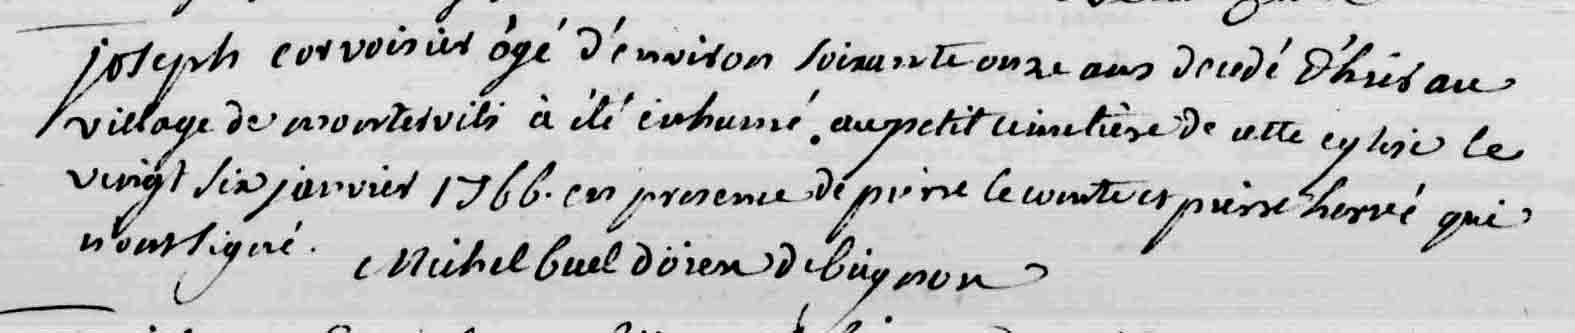 joseph corvoisier ôgé d'environ soixante onze ans decedé d'hier au
village de montervili à été inhumé au petit cimetière de cette eglise le
vingt six janvier 1766. en presence de pierre le comte et pierre hervé qui
n'ont signé. Michel buel doien de buignon